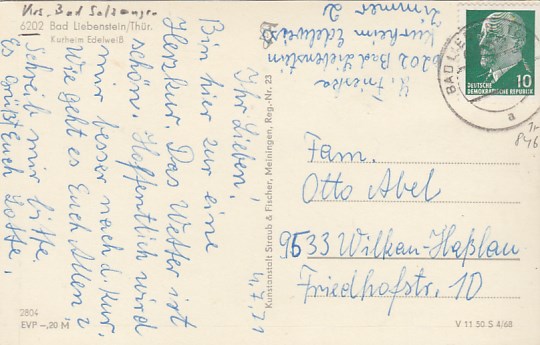 Krs. Bad Salzungen
6202 Bad Liebenstein/Thür.
Kurheim Edelweiß
Kurheim Edelweiss
6202 Bad Liebenstein
Zimmer 2
4.7.71
Ihr Lieben!
Bin hier zur eine
Herzkur. Das Wetter ist
schön. Hoffentlich wird
mir besser nach d. Kur.
Wie geht es Euch Allen?
Schreib mir bitte,
Es grüßt Euch Lotte.
2804
EVP –,20 M
Kunstanstalt Straub & Fischer, Meiningen, Reg.-Nr. 23
DEUTSCHE
DEMOKRATISCHE REPUBLIK
10
BAD LIEBENSTEIN
a
Fam.
Otto Abel
9533 Wilkau-Haßlau
Friedhofstr. 10
V 11 50 S 4/68